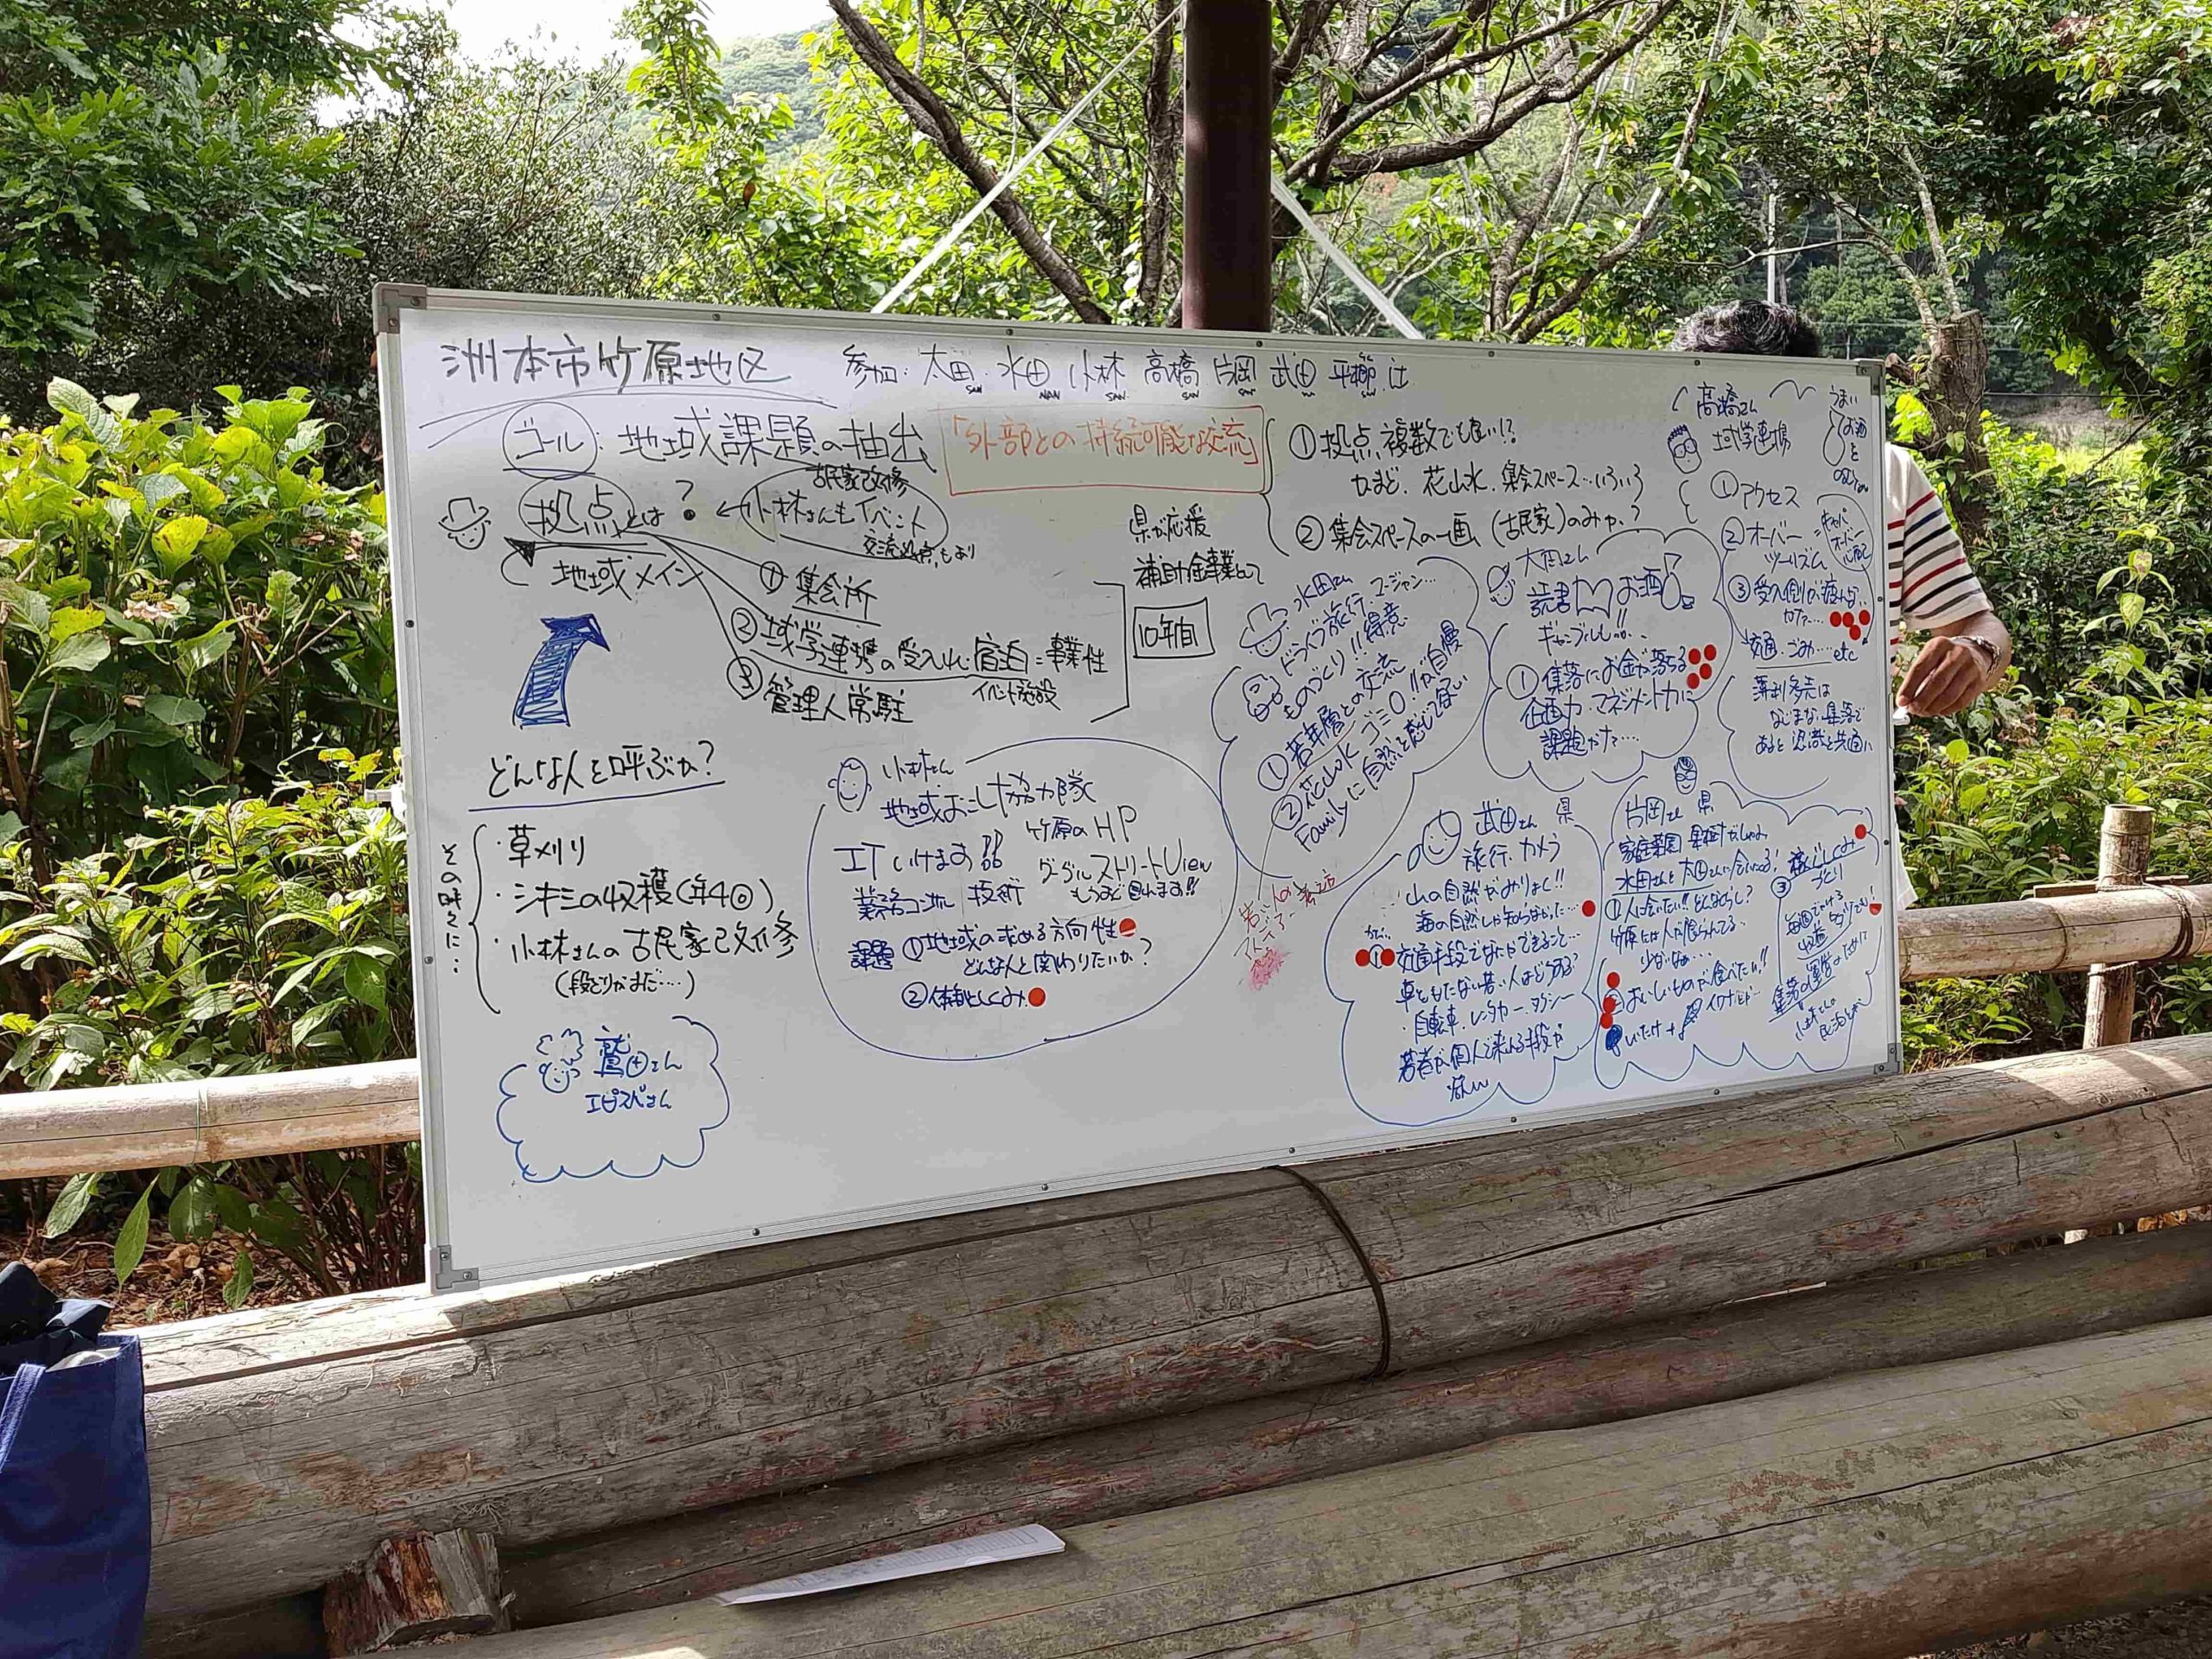 洲本市竹原地区
参加: 太田 水田 小林 高橋 片岡 武田 平櫛 辻
SAN NAN SAN SAN SAN SAN
ゴール: 地域課題の抽出
「外部との持続可能な交流」
拠点とは?
古民家改修
小林さんもイベント
交流拠点もあり
地域メイン
① 集会所
② 域学連携の受入れ: 宿泊=事業性
イベント施設
③ 管理人常駐
県が応援
補助金事業として
10年間
① 拠点、複数でも良い!?
かまど、花山水、集会スペース…いろいろ
② 集会スペースの一画 (古民家)のみか?
どんな人を呼ぶか?
その時々に…
・草刈り
・シキミの収穫(年4回)
・小林さんの古民家改修
(段どりがまだ…)
鷲田さん
小林さん
地域おこし協力隊
ITいけます!! 竹原のHP
業務コンサル 技術
グーグルストリートView
課題 ①地域の求める方向性
どんな人と関わりたいか?
②体制としくみ
水田さん
ドライブ旅行 マージャン…
ものづくり!! 得意
①若年層との交流
②花山水 ゴミ0!!が自慢
Familyに自然を感じてほしい
太田さん
読書 お酒
①集落にお金が落ちる
企画力・マネジメント力に
課題かナ…
高橋さん
域学連携
うまい
お酒
を
①アクセス
②オーバー
ツーリズム
③受入側が疲れない
かナ…
交通・ごみ…etc
薄利多売は
なじまない集落で
あると認識を共通に
武田さん 県
旅行・カメラ
山の自然がみりょく!!
海の自然しか知らなかった…
①交通手段でなにかできること…
車をもたない若い人はどうする?
・自転車・レンタカー・タクシー
若者が個人で来れる手段が
無い
片岡さん 県
水田さんと太田さんに会いたくて!
①人に会いたい!! どんなくらし?
竹原には人が限られてる
少ないな…
②おいしいものが食べたい!!
③稼ぐしくみ
づくり
集落の運営のために